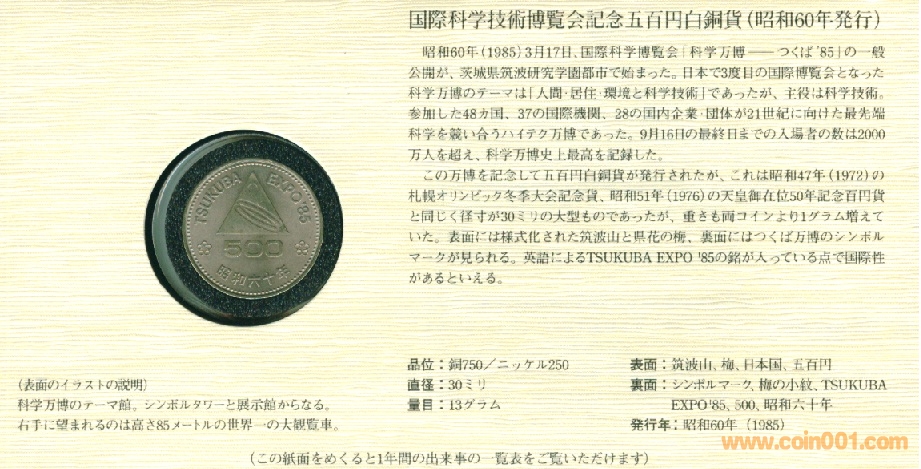 国際科学技術博覧会記念五百円白銅貨(昭和60年発行)
昭和60年(1985)3月17日、国際科学博覧会「科学万博——つくば'85」の一般
公開が、茨城県筑波研究学園都市で始まった。日本で3度目の国際博覧会となった
科学万博のテーマは「人間・居住・環境と科学技術」であったが、主役は科学技術。
参加した48カ国、37の国際機関、28の国内企業・団体が21世紀に向けた最先端
科学を競い合うハイテク万博であった。9月16日の最終日までの入場者の数は2000
万人を超え、科学万博史上最高を記録した。
この万博を記念して五百円白銅貨が発行されたが、これは昭和47年(1972)の
札幌オリンピック冬季大会記念貨、昭和51年(1976)の天皇御在位50年記念百円貨
と同じく径寸が30ミリの大型ものであったが、重さも両コインより1グラム増えて
いた。表面には様式化された筑波山と県花の梅、裏面にはつくば万博のシンボル
マークが見られる。英語によるTSUKUBA EXPO '85の銘が入っている点で国際性
があるといえる。
TSUKUBA EXPO'85
500
昭和六十年
品位:銅750/ニッケル250
直径:30ミリ
量目:13グラム
表面:筑波山、梅、日本国、五百円
裏面:シンボルマーク、梅の小紋、TSUKUBA
EXPO'85、500、昭和六十年
発行年:昭和60年(1985)
(表面のイラストの説明)
科学万博のテーマ館。シンボルタワーと展示館からなる。
右手に望まれるのは高さ85メートルの世界一の大観覧車。
www.coin001.com
(この紙面をめくると1年間の出来事の一覧表をご覧いただけます)